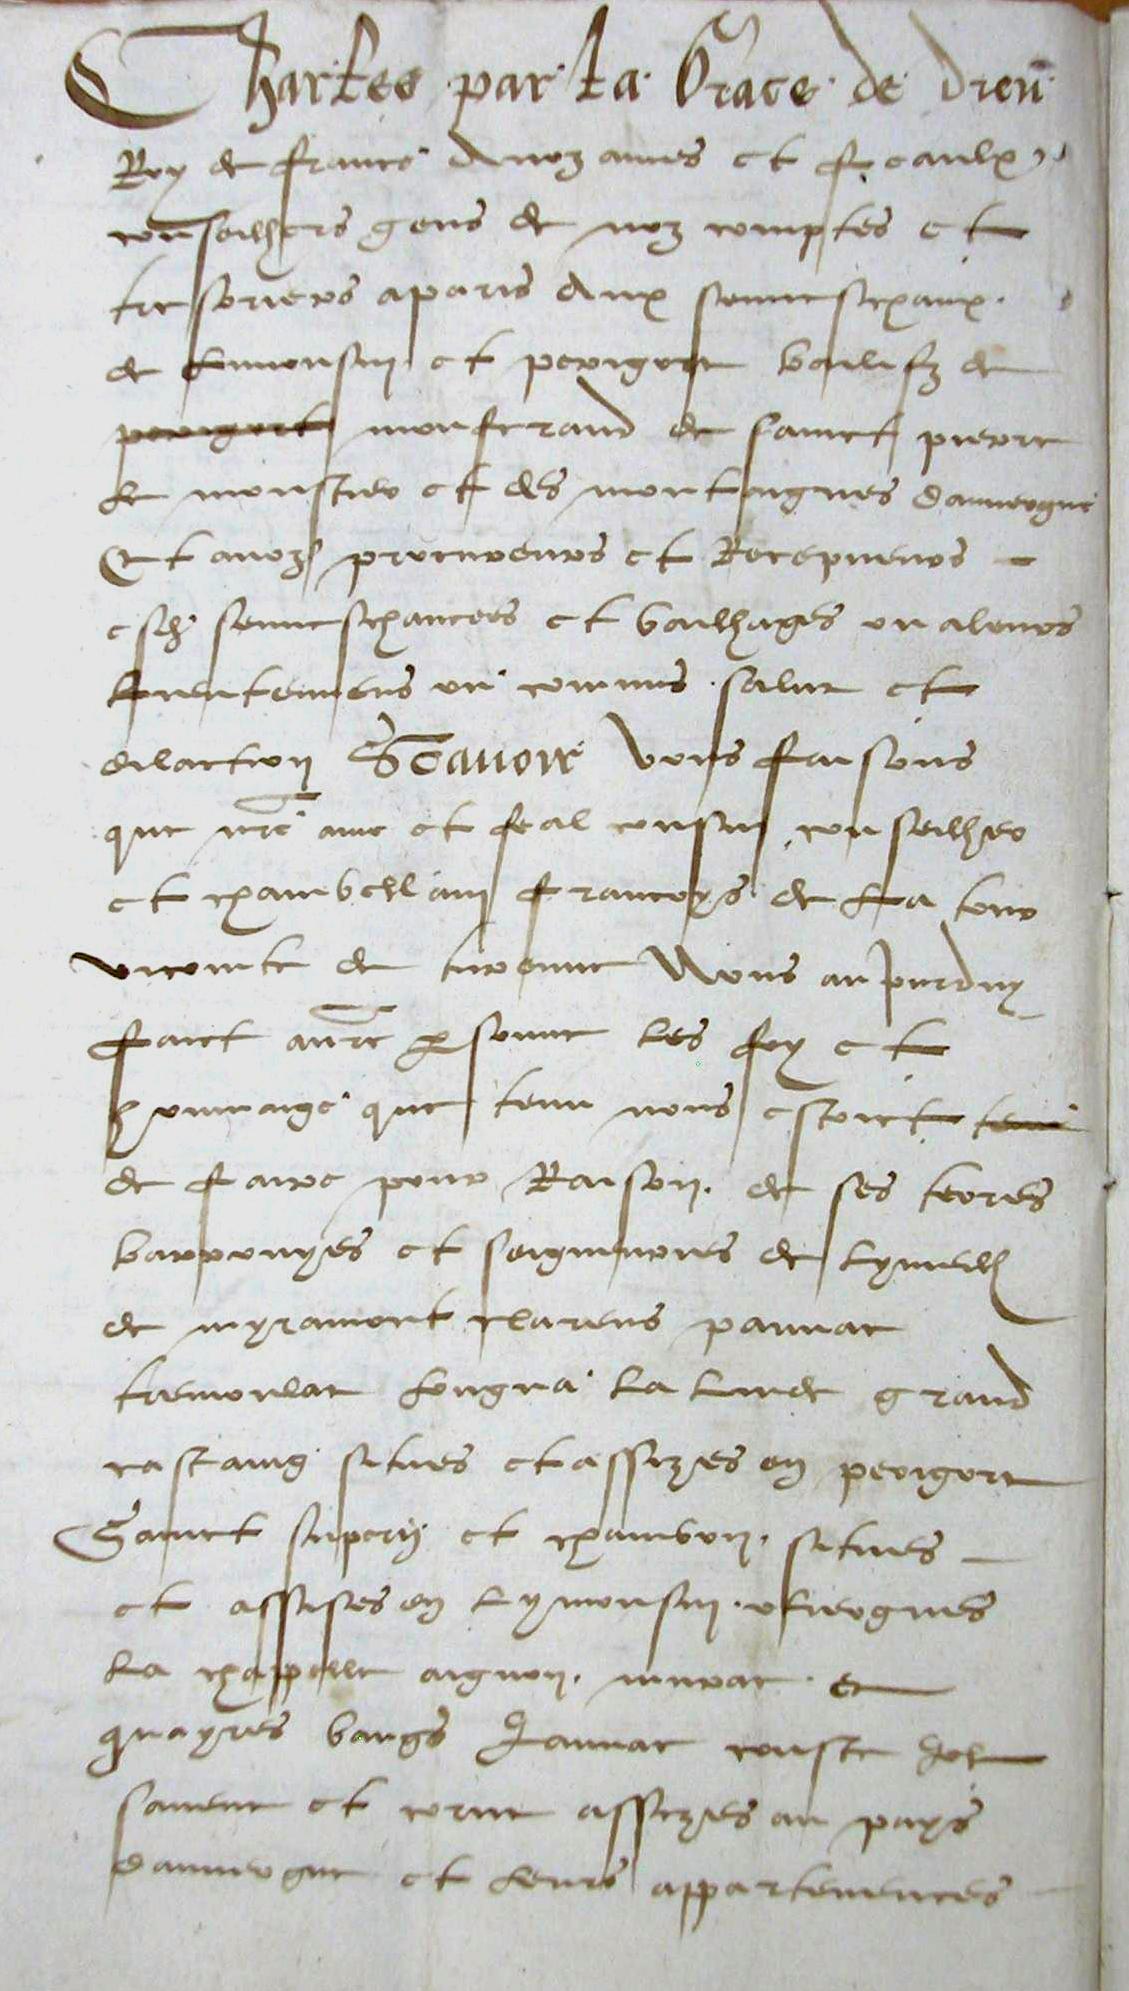 Charles par la Grace de dieu
Roy de france Anoz ames et feaulx
conseilhers gens de noz comptes et
tresoriers aparis Aux senneschaux
de Limousin et perigort bailifz de
perigort monferrand de sainct pierre
le monstier et des montaignes dauvergne
Et anoz procureurs et Recepveurs
esd. senneschaucees et bailhages ou aleurs
lieutenens ou commis salut et
dilaction Scavoir vous faisons
que nre ame et feal cousin conseilher
et chambellain francoys de La tour
viconte de turenne Nous au jourduy
faict anre personne les foy et
hommaige que tenu nous estoict tenu
de faire pour Raison de ses terres
barronyes et seigneuries de Lymeilh
de myramont clarens paunac
tremoulat Longna La Linde grand
castaing situes et assizes en perigort
Sainct supery et chambon situes
et assises en Lymousin
La chappelle aignon murat et
quayres
savene et corne assizes au pays
dauvergne et leurs appartenences